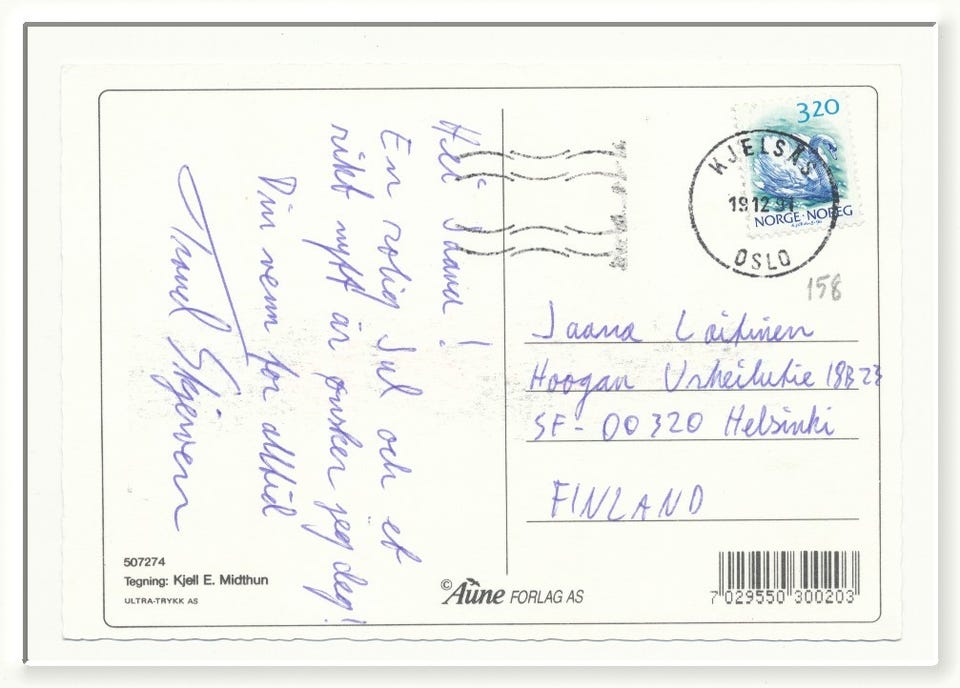 Hei Jaana!
En rolig Jul och et
rikt nytt år ønsker jeg deg!
Din venn for alltid
Skjerven
320
KJELSÅS
19.12.91
OSLO
NORGE·NOREG
158
Jaana Laitinen
18B23
SF-00320 Helsinki
FINLAND
507274
Tegning: Kjell E. Midthun
ULTRA-TRYKK AS
© Aune FORLAG AS
7 029550 300203